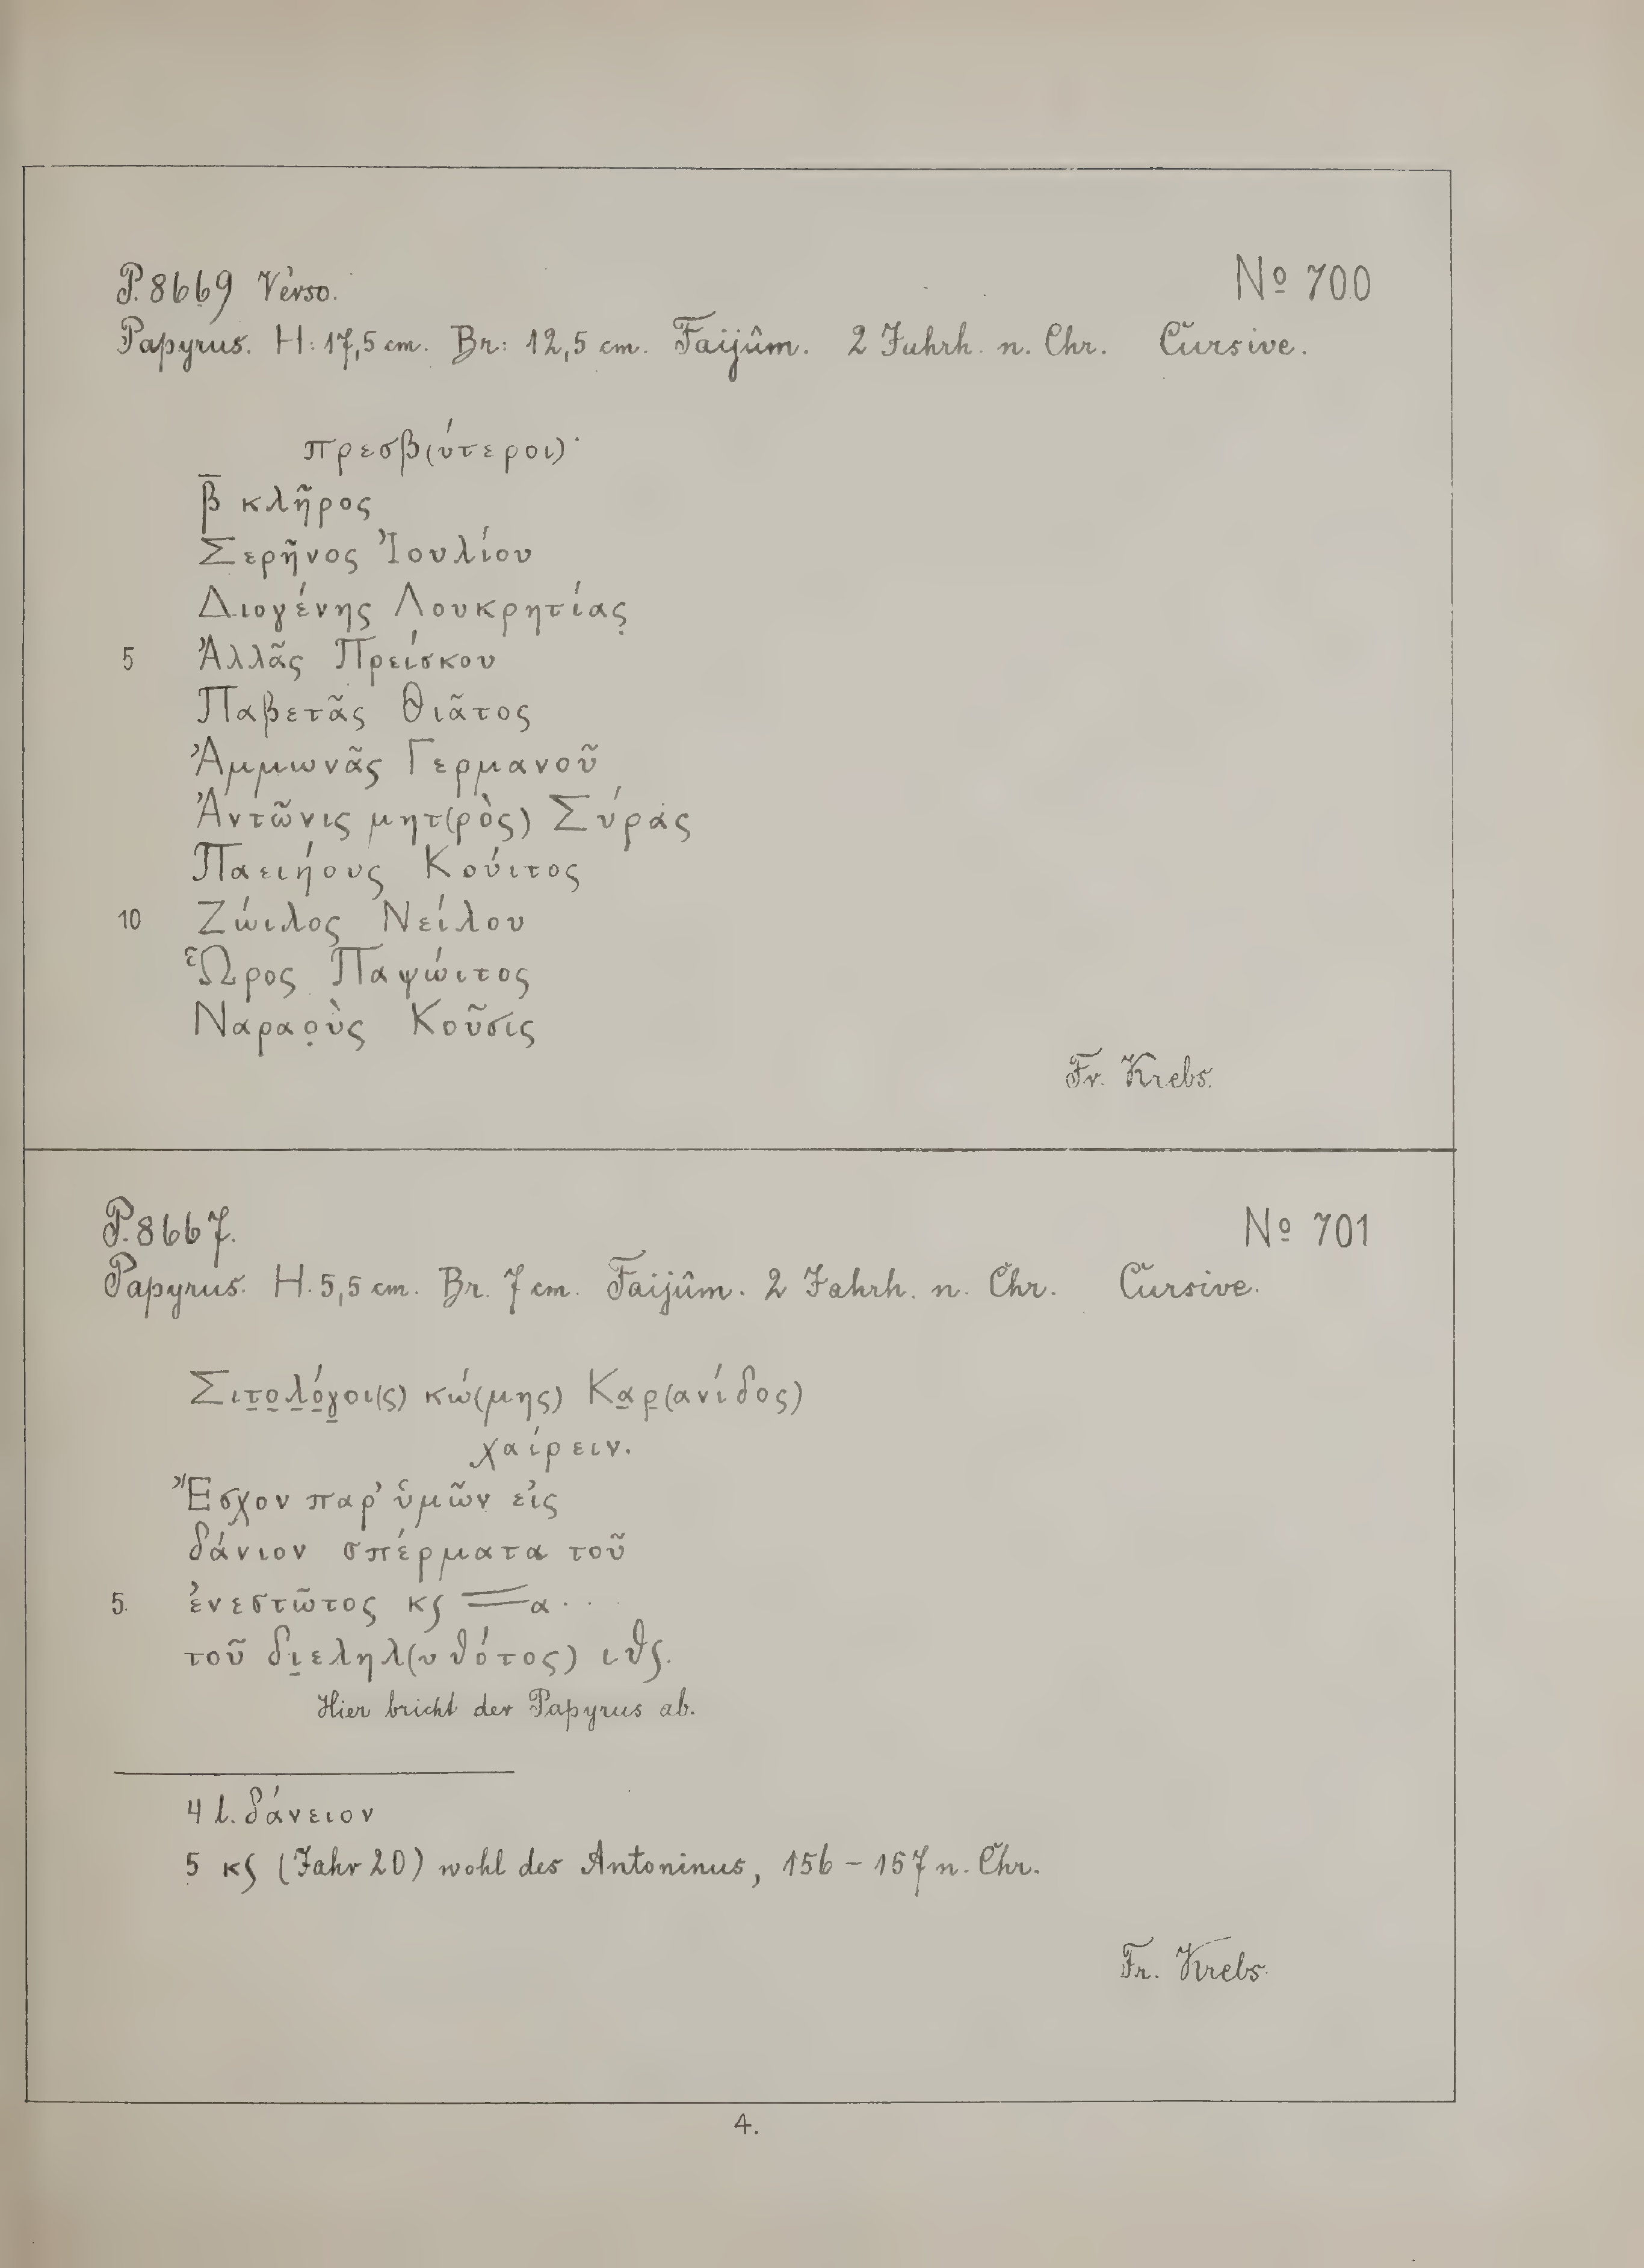 P. 8669 Verso. № 700
Papyrus. H: 17,5 cm. Br: 12,5 cm. Faijûm. 2 Jahrh. n. Chr. Cursive.
πρεσβ(ύτεροι)·
β̅ κλῆρος
Σερῆνος Ἰουλίου
Διογένης Λουκρητίας̣
5 Ἀλλᾶς Πρείσκου
Παβετᾶς Θιᾶτος
Ἀμμωνᾶς Γερμανοῦ
Ἀντῶνις μητ(ρὸς) Σύρας
Παειήους Κούιτος
10 Ζώιλος Νείλου
Ὧρος Παψώιτος
Ναραο̣ὺς Κοῦσις
Fr. Krebs.
P. 8667. № 701
Papyrus. H. 5,5 cm. Br. 7 cm. Faijûm. 2 Jahrh. n. Chr. Cursive.
Σιτ̲ο̲λ̲ό̲γ̲οι(ς) κώ(μης) Κα̲ρ̲(ανίδος)
χαίρειν.
Ἔσχον παρ' ὑμῶν εἰς
δάνιον σπέρματα τοῦ
5. ἐνεστῶτος κϛ =α· ·
τοῦ δι̲εληλ(υθότος) ιθϛ.
Hier bricht der Papyrus ab.
4 l. δάνειον
5 κϛ (Jahr 20) wohl des Antoninus, 156 – 157 n. Chr.
Fr. Krebs.
4.